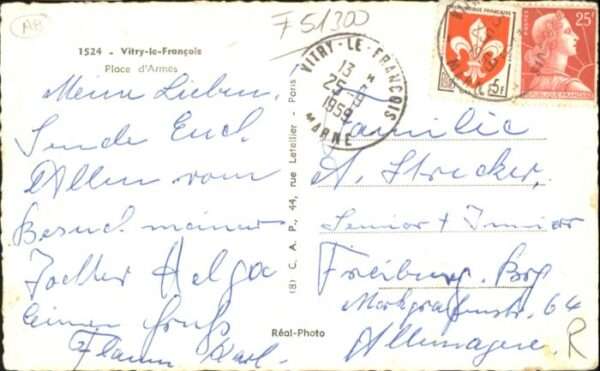 AB
F51300
1524 - Vitry-le-François
Place d'Armes
Meine Lieben.
Sende Euch
Allen vom
Besuch meiner
Tochter Helga
einen Gruß
Karl.
(8) C. A. P., 44, rue Letellier - Paris
Réal-Photo
VITRY-LE-FRANÇOIS
13 H
25-9
1959
MARNE
5F
25F
REPUBLIQUE FRANÇAISE
Familie
A. Strecker,
Senior + Junior
Freiburg. Brg
Markgrafenstr. 64
Allemagne.
R